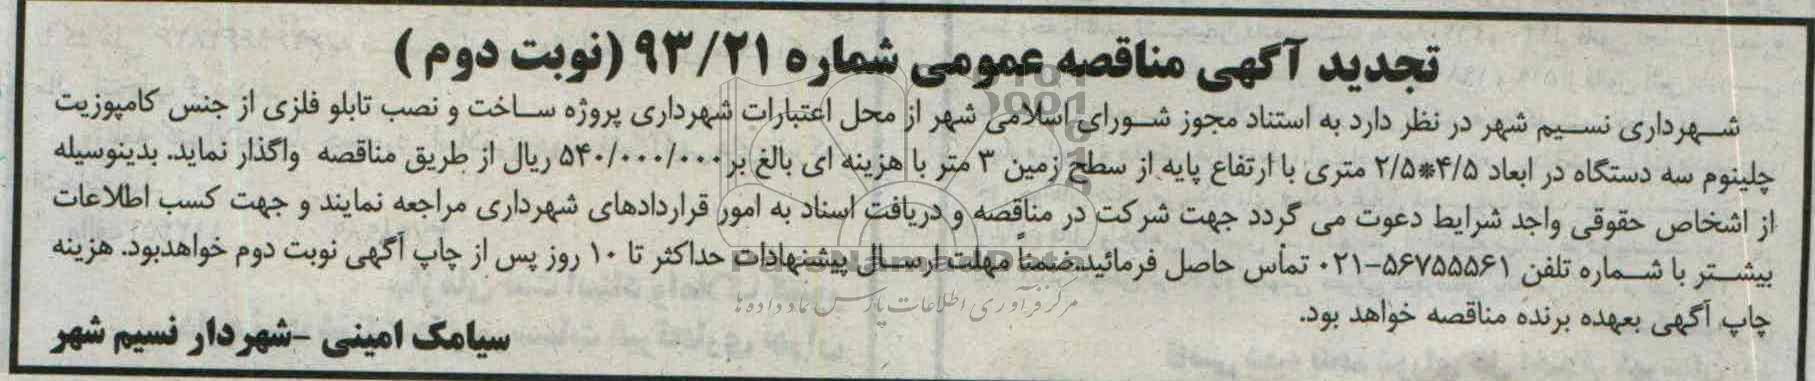 تجدید آگهی مناقصه عمومی شماره ۹۳/۲۱ (نوبت دوم)
شهرداری نسیم شهر در نظر دارد به استناد مجوز شورای اسلامی شهر از محل اعتبارات شهرداری پروژه ساخت و نصب تابلو فلزی از جنس کامپوزیت
چلینوم سه دستگاه در ابعاد ۴/۵*۲/۵ متری با ارتفاع پایه از سطح زمین ۳ متر با هزینه ای بالغ بر ۵۴۰/۰۰۰/۰۰۰ ریال از طریق مناقصه واگذار نماید. بدینوسیله
از اشخاص حقوقی واجد شرایط دعوت می گردد جهت شرکت در مناقصه و دریافت اسناد به امور قراردادهای شهرداری مراجعه نمایند و جهت کسب اطلاعات
بیشتر با شماره تلفن ۵۶۷۵۵۵۶۱-۰۲۱ تماس حاصل فرمائید.ضمناً مهلت ارسال پیشنهادات حداکثر تا ۱۰ روز پس از چاپ آگهی نوبت دوم خواهدبود. هزینه
چاپ آگهی بعهده برنده مناقصه خواهد بود.
مرکز فرآوری اطلاعات پارس نماد داده ها
سیامک امینی -شهردار نسیم شهر